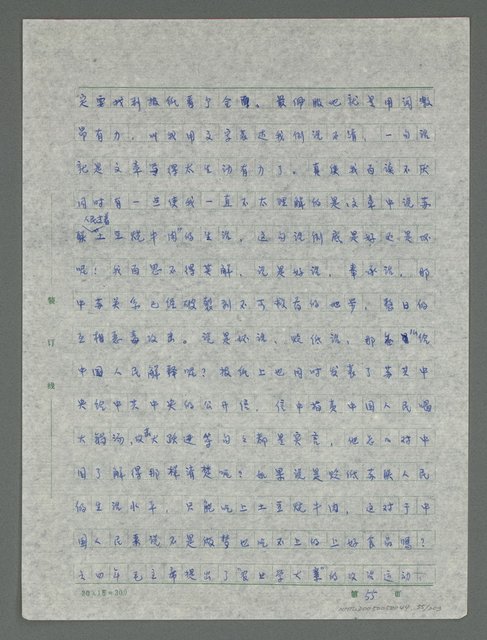 定要找到报纸看了全面。最佩服也就是用词激
昂有力，叫我用文字表述我倒说不清，一句话
就是文章写得太生动有力了。真使我百读不厌
同时有一点使我一直不太理解的是文章中说苏
联人民过着“土豆烧牛肉”的生活，这句话倒底是好还是坏
呢？我百思不得其解，说是好话，奉承话，那
中苏关系已经破裂到不可救药的地步，整日的
互相恶毒攻击。说是坏话、贬低话，那 给
中国人民解释呢？报纸上也同时发表了苏共中
央给中共中央的公开信，信中指责中国人民喝
大锅汤，大跃进等句子都是实言，他怎么对中
国了解得那样清楚呢？如果说是贬低苏联人民
的生活水平，只能吃上土豆烧牛肉，这对于中
国人民来说不是做梦也吃不上的上好食品吗？
六四年毛主席提出了“农业学大寨”的政治运动
装
订
线
20×15=300
第 55 页